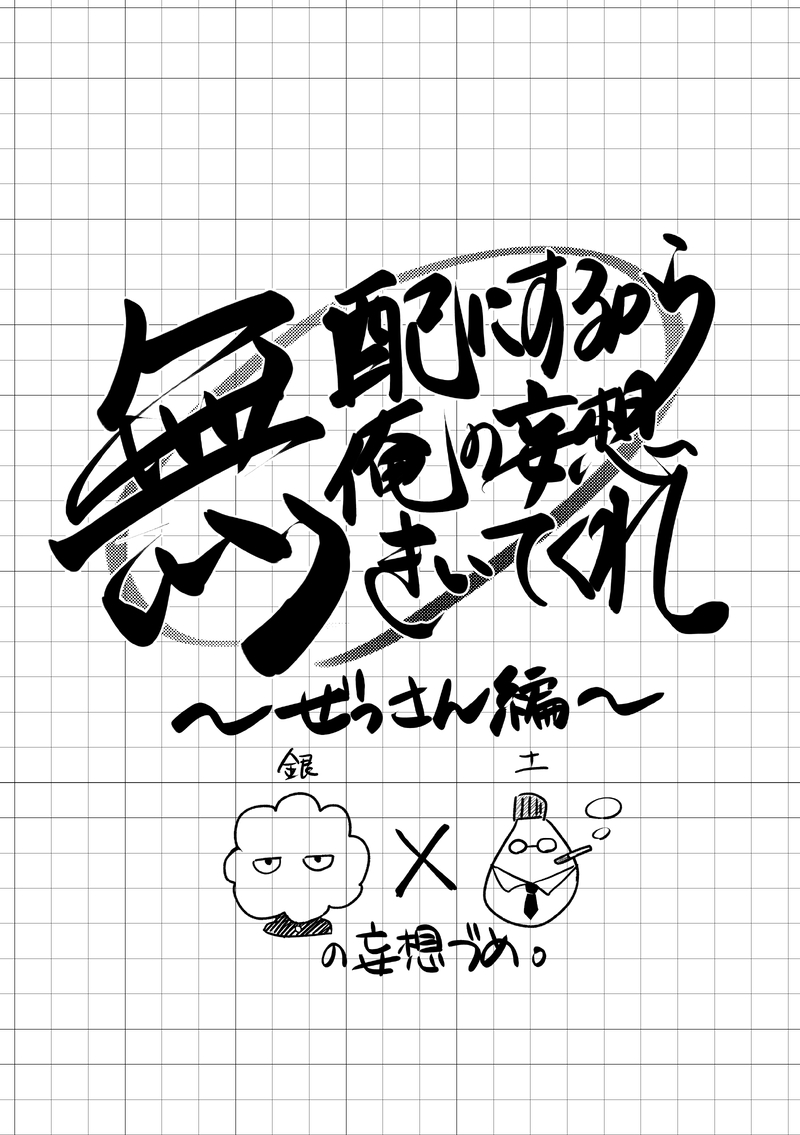 無配にするから
俺の妄想
きいてくれ
～ぜっさん編～
銀 土
×
の妄想づめ。